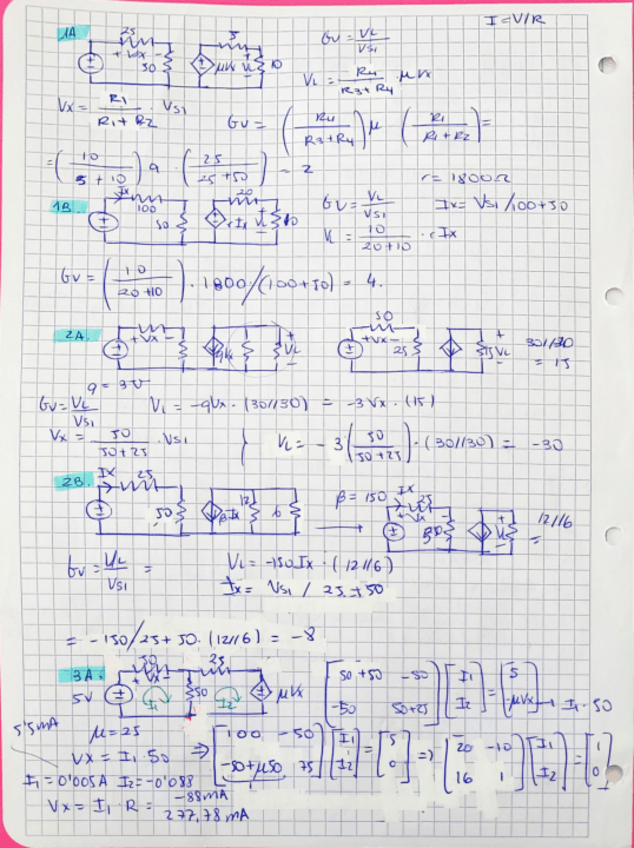 I = V/R
1A
25
+ Vx -
50
5
μVx
VL
10
Gv = VL/VS1
VL = R4/(R3+R4) · μVx
Vx = R1/(R1+R2) · VS1
Gv = (R4/(R3+R4)) μ (R1/(R1+R2)) =
= (10/(5+10)) 9 · (25/(25+50)) = 2
r = 1800Ω
1B.
Ix
100
50
20
rIx
VL
10
Gv = VL/VS1
Ix = VS1/100+50
VL = 10/(20+10) · rIx
Gv = (10/(20+10)) · 1800/(100+50) = 4.
2A.
+ Vx -
gVx
+
VL
-
50
+ Vx -
25
15
+
VL
-
30//30
= 15
g = 3℧
Gv = VL/VS1
VL = -gVx · (30//30) = -3Vx · (15)
Vx = 50/(50+25) · VS1
VL = -3 (50/(50+25)) · (30//30) = -30
2B.
Ix
25
50
βIx
12
6
β = 150
Ix
25
+ Vx -
50
+
VL
-
12//6
=
Gv = VL/VS1 =
VL = -150Ix · (12//6)
Ix = VS1 / 25 + 50
= -150/25+50 · (12//6) = -8
3A.
50
25
+ Vx -
5V
I1
50
I2
μVx
[50+50 -50; -50 50+25] [I1; I2] = [5; -μVx] → I1 · 50
5'5mA
μ = 25
Vx = I1 · 50
⇒ [100 -50; -50+μ50 75] [I1; I2] = [5; 0] ⇒ [20 -10; 16 1] [I1; I2] = [1; 0]
I1 = 0'005A I2 = -0'088
Vx = I1 · R = -88mA
277,78 mA